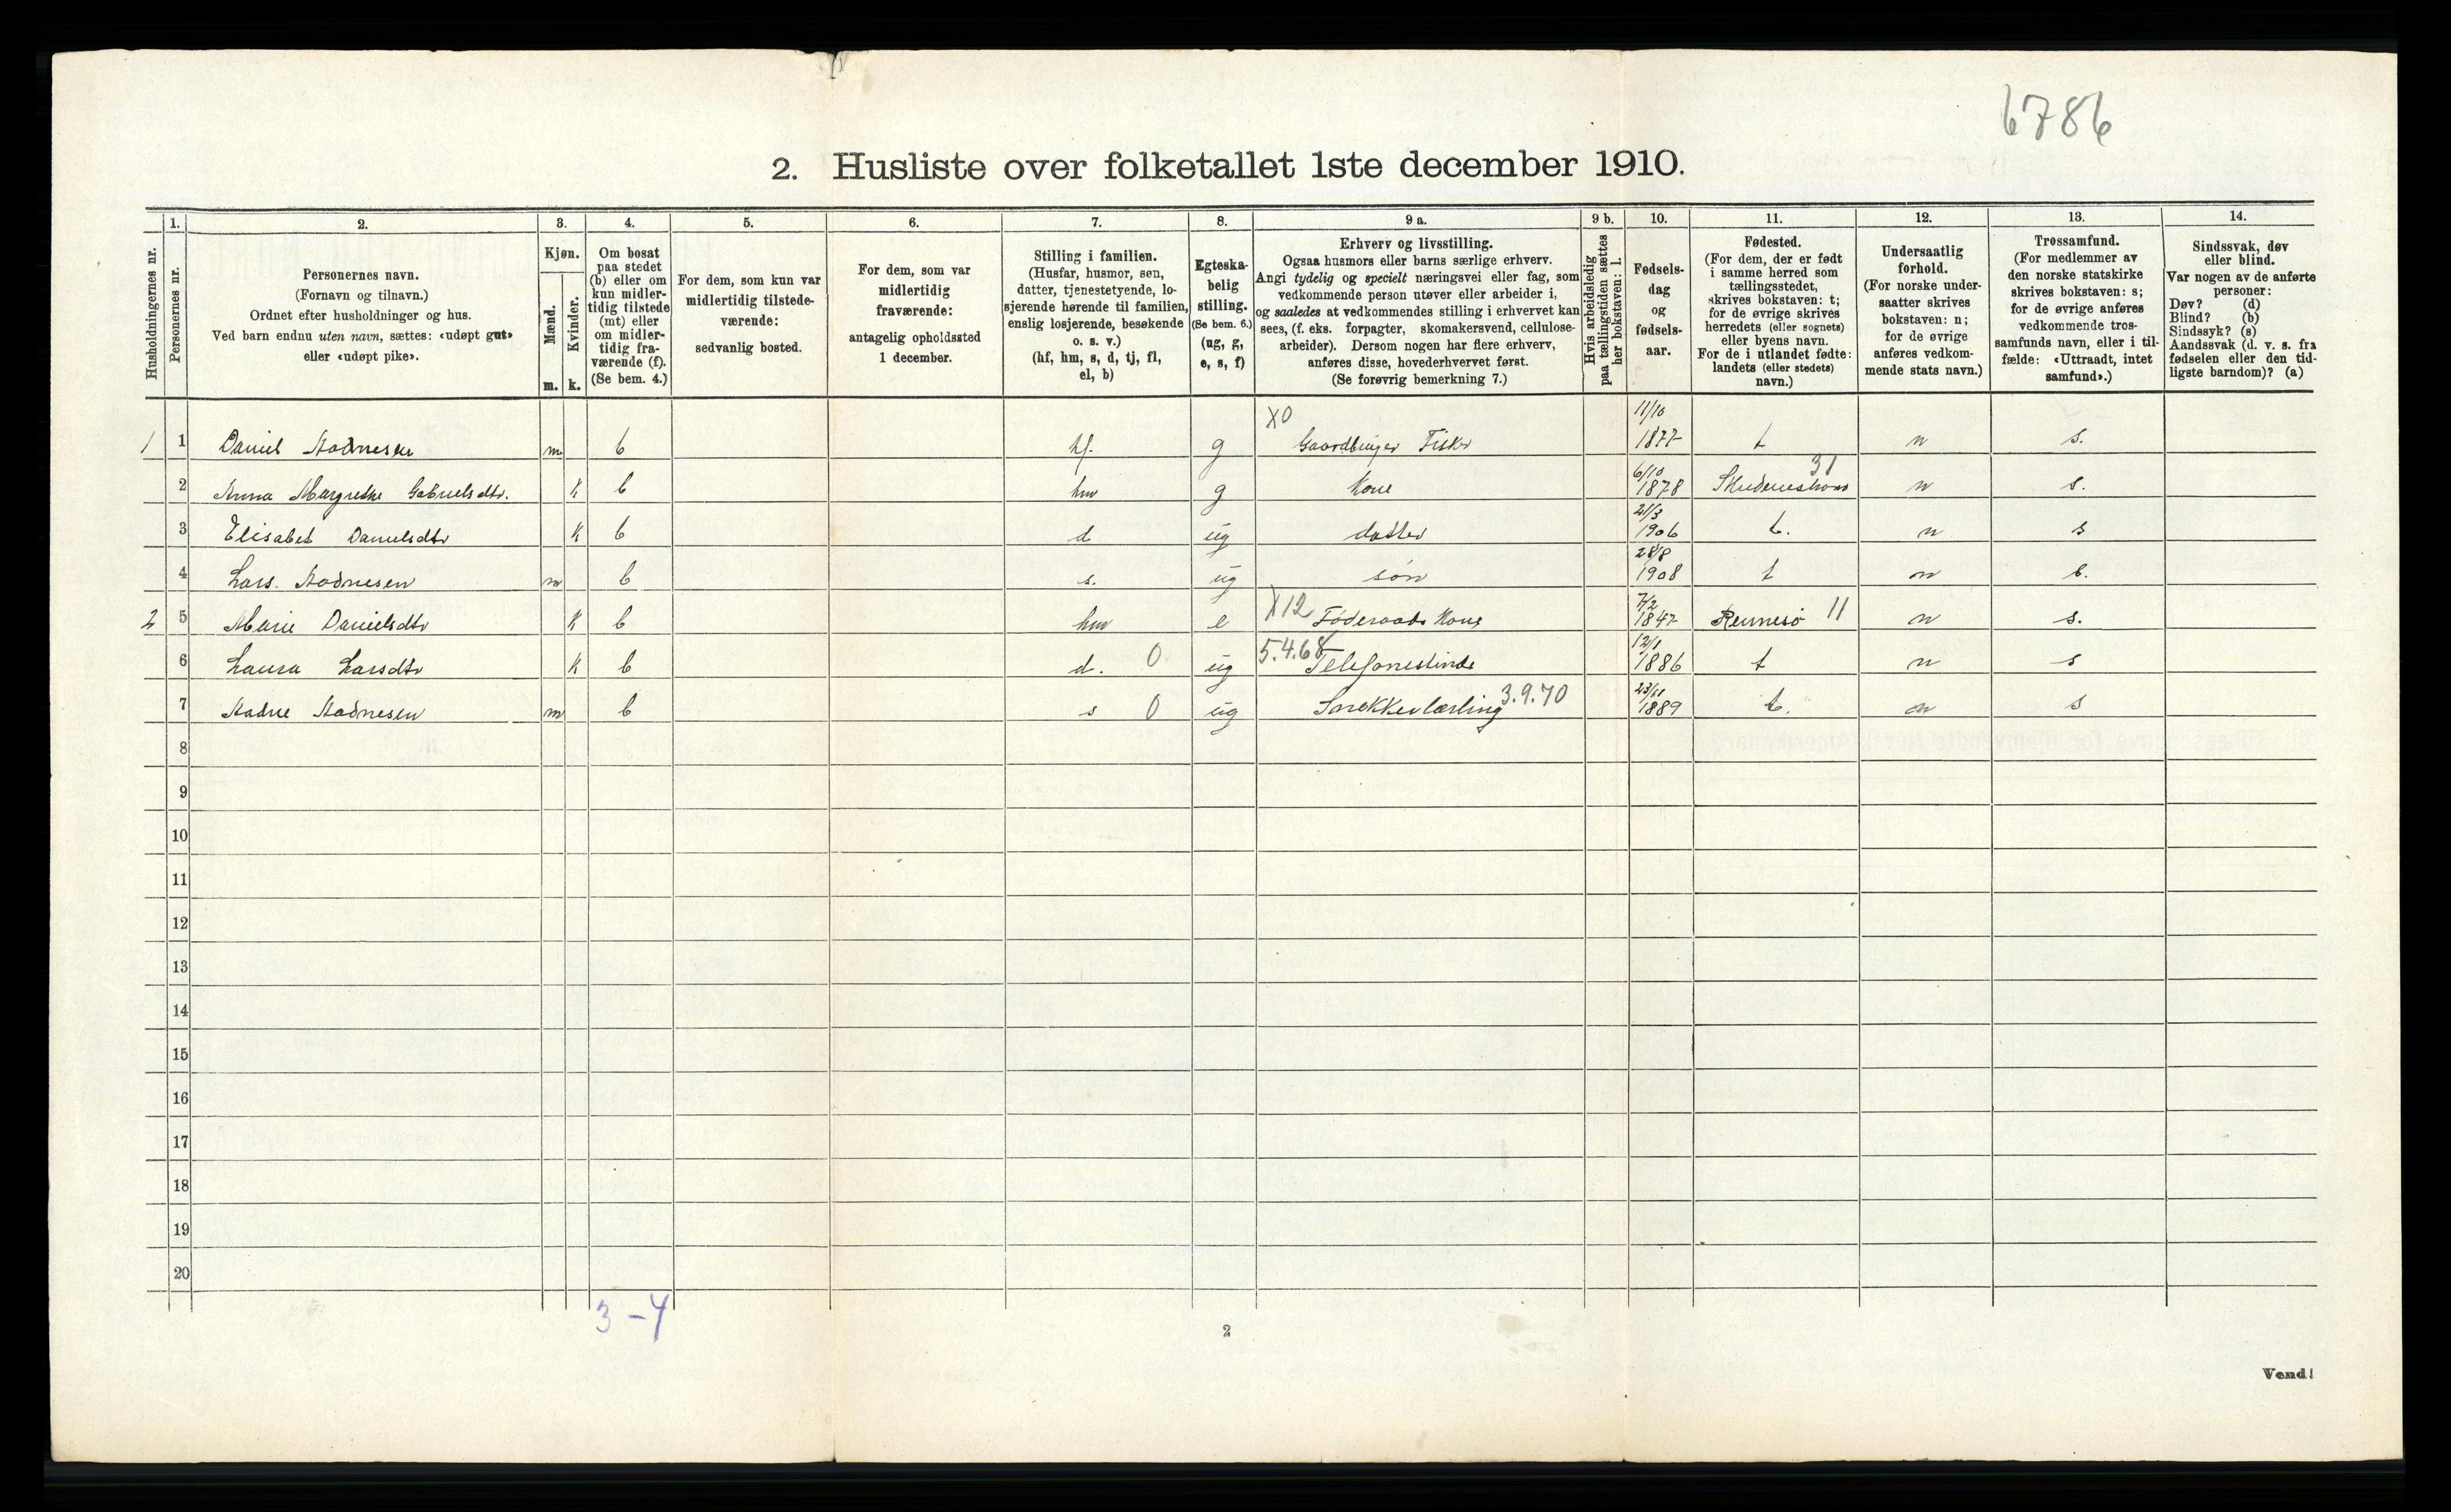 6786
2. Husliste over folketallet 1ste december 1910.
Husholdningernes nr.
1.
Personernes nr.
2.
Personernes navn.
(Fornavn og tilnavn.)
Ordnet efter husholdninger og hus.
Ved barn endnu uten navn, sættes: «udøpt gut»
eller «udøpt pike».
3.
Kjøn.
Mænd.
m.
Kvinder.
k.
4.
Om bosat
paa stedet
(b) eller om
kun midler-
tidig tilstede
(mt) eller
om midler-
tidig fra-
værende (f).
(Se bem. 4.)
5.
For dem, som kun var
midlertidig tilstede-
værende:
sedvanlig bosted.
6.
For dem, som var
midlertidig
fraværende:
antagelig opholdssted
1 december.
7.
Stilling i familien.
(Husfar, husmor, søn,
datter, tjenestetyende, lo-
sjerende hørende til familien,
enslig losjerende, besøkende
o. s. v.)
(hf, hm, s, d, tj, fl,
el, b)
8.
Egteska-
belig
stilling.
(Se bem. 6.)
(ug, g,
e, s, f)
9 a.
Erhverv og livsstilling.
Ogsaa husmors eller barns særlige erhverv.
Angi tydelig og specielt næringsvei eller fag, som
vedkommende person utøver eller arbeider i,
og saaledes at vedkommendes stilling i erhvervet kan
sees, (f. eks. forpagter, skomakersvend, cellulose-
arbeider). Dersom nogen har flere erhverv,
anføres disse, hovederhvervet først.
(Se forøvrig bemerkning 7.)
9 b.
Hvis arbeidsledig
paa tællingstiden sættes
her bokstaven: l.
10.
Fødsels-
dag
og
fødsels-
aar.
11.
Fødested.
(For dem, der er født
i samme herred som
tællingsstedet,
skrives bokstaven: t;
for de øvrige skrives
herredets (eller sognets)
eller byens navn.
For de i utlandet fødte:
landets (eller stedets)
navn.)
12.
Undersaatlig
forhold.
(For norske under-
saatter skrives
bokstaven: n;
for de øvrige
anføres vedkom-
mende stats navn.)
13.
Trossamfund.
(For medlemmer av
den norske statskirke
skrives bokstaven: s;
for de øvrige anføres
vedkommende tros-
samfunds navn, eller i til-
fælde: «Uttraadt, intet
samfund».)
14.
Sindssvak, døv
eller blind.
Var nogen av de anførte
personer:
Døv? (d)
Blind? (b)
Sindssyk? (s)
Aandssvak (d. v. s. fra
fødselen eller den tid-
ligste barndom)? (a)
1 1 Daniel Aadnesen m b hf. g X0 Gaardbruger Fisker 11/10 1877 t n s.
2 Anna Margrethe Gabrielsdtr. k b hm g Kone 6/10 1878 Skudeneshavn 31 n s.
3 Elisabet Danielsdtr k b d ug datter 21/3 1906 t. n s
4 Lars. Aadnesen m b s. ug søn 28/8 1908 t n s.
2 5 Marie Danielsdtr k b hm e X12 Føderaads Kone 7/2 1847 Rennesø 11 n s.
6 Laura Larsdtr k b d. 0. ug 5.4.68 Telefonistinde 12/1 1886 t n s
7 Aadne Aadnesen m b s 0 ug Snekkerlærling 3.9.70 23/11 1889 t. n s
8
9
10
11
12
13
14
15
16
17
18
19
20
3-4
2
Vend!